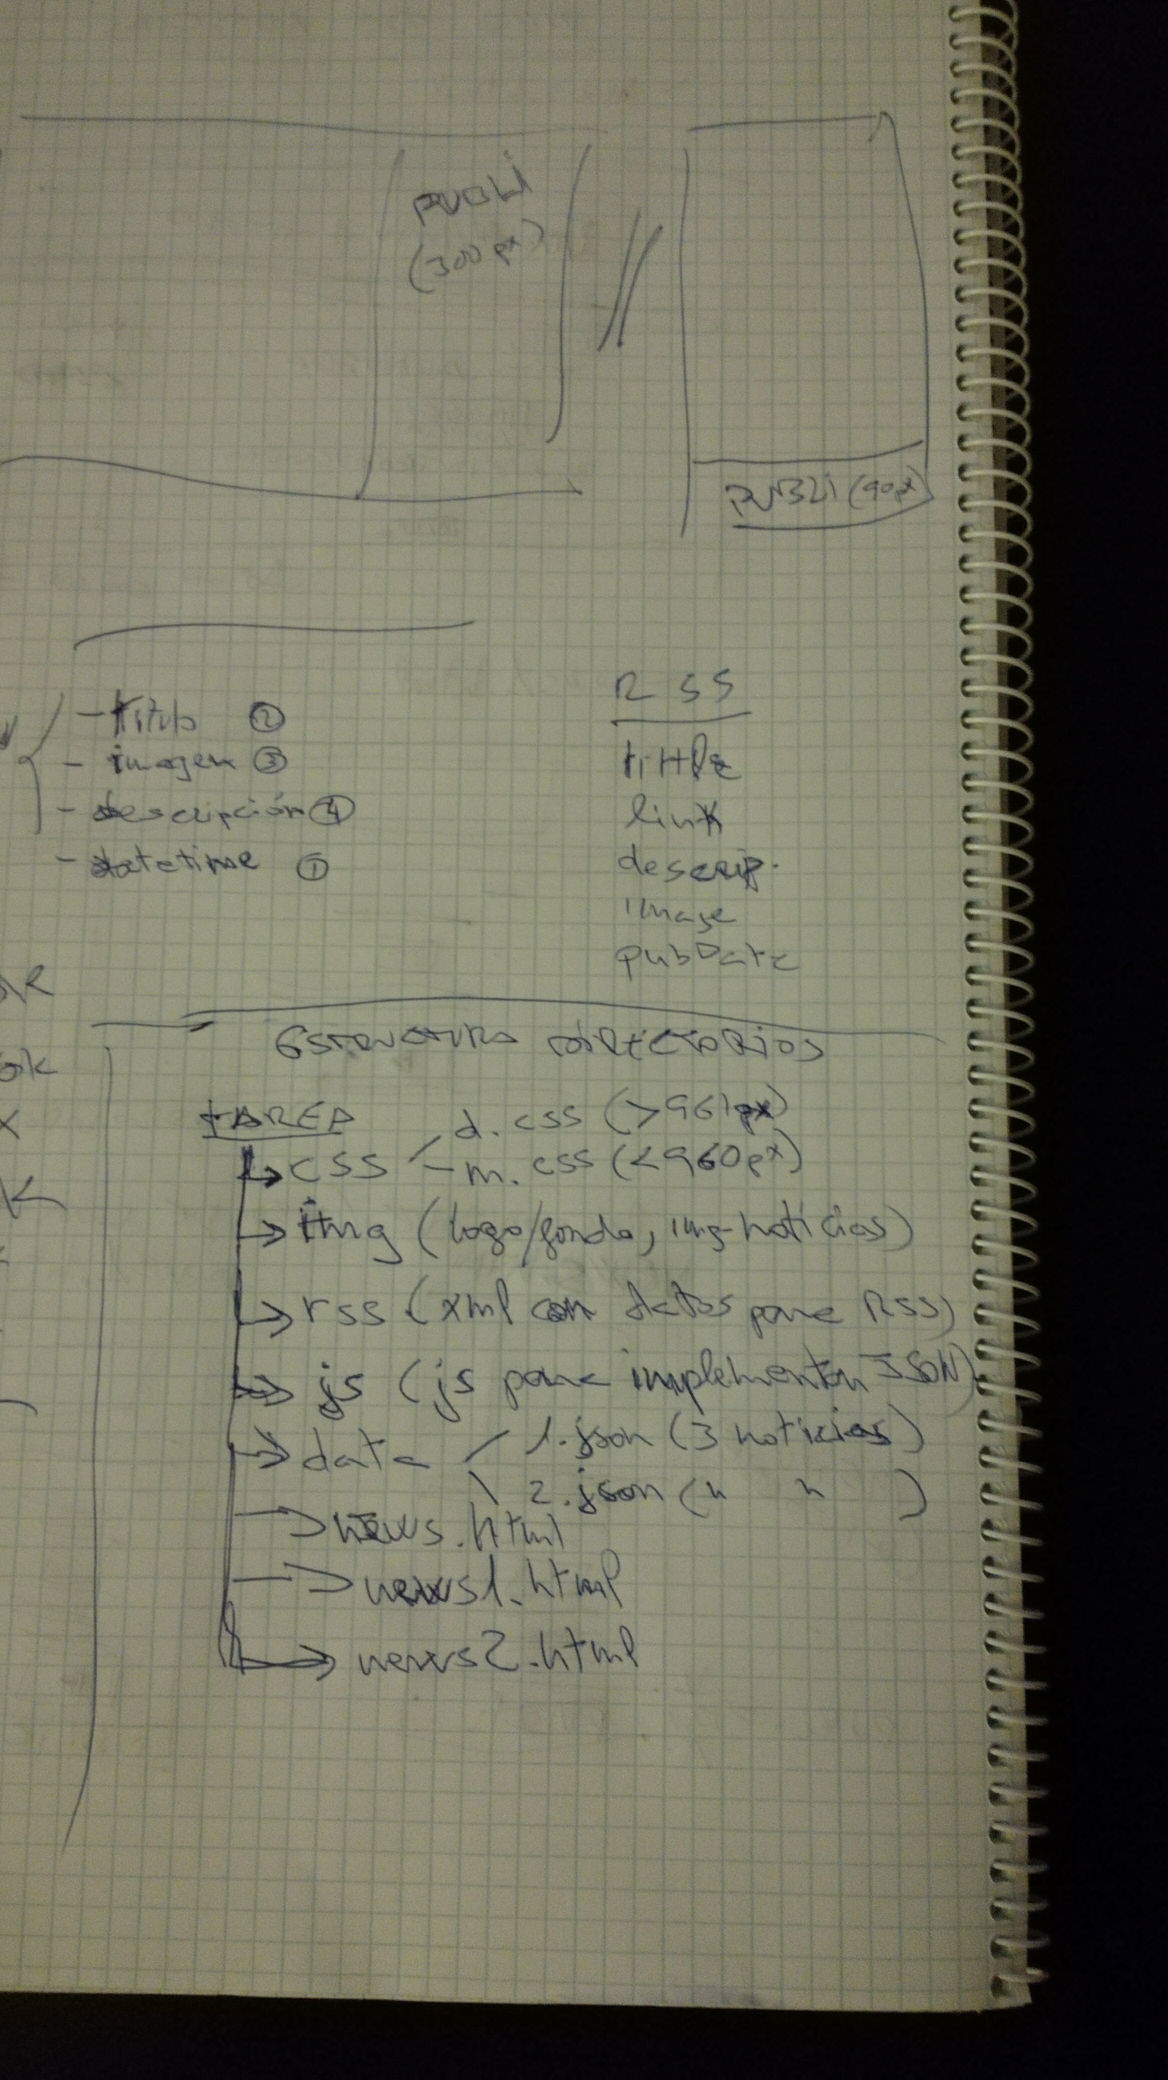 PUBLI
(300 px)
PUBLI (90px)
- titulo ②
- imagen ③
- descripción ④
- datetime ①
RSS
tittle
link
descrip.
image
pubDate
ESTRUCTURA DIRECTORIOS
TAREA
d.css (>961px)
css
m.css (<960px)
img (logo/fondo, img-noticias)
rss (xml con datos para RSS)
js (js para implementar JSON)
data
1.json (3 noticias)
2.json (" ")
news.html
news1.html
news2.html